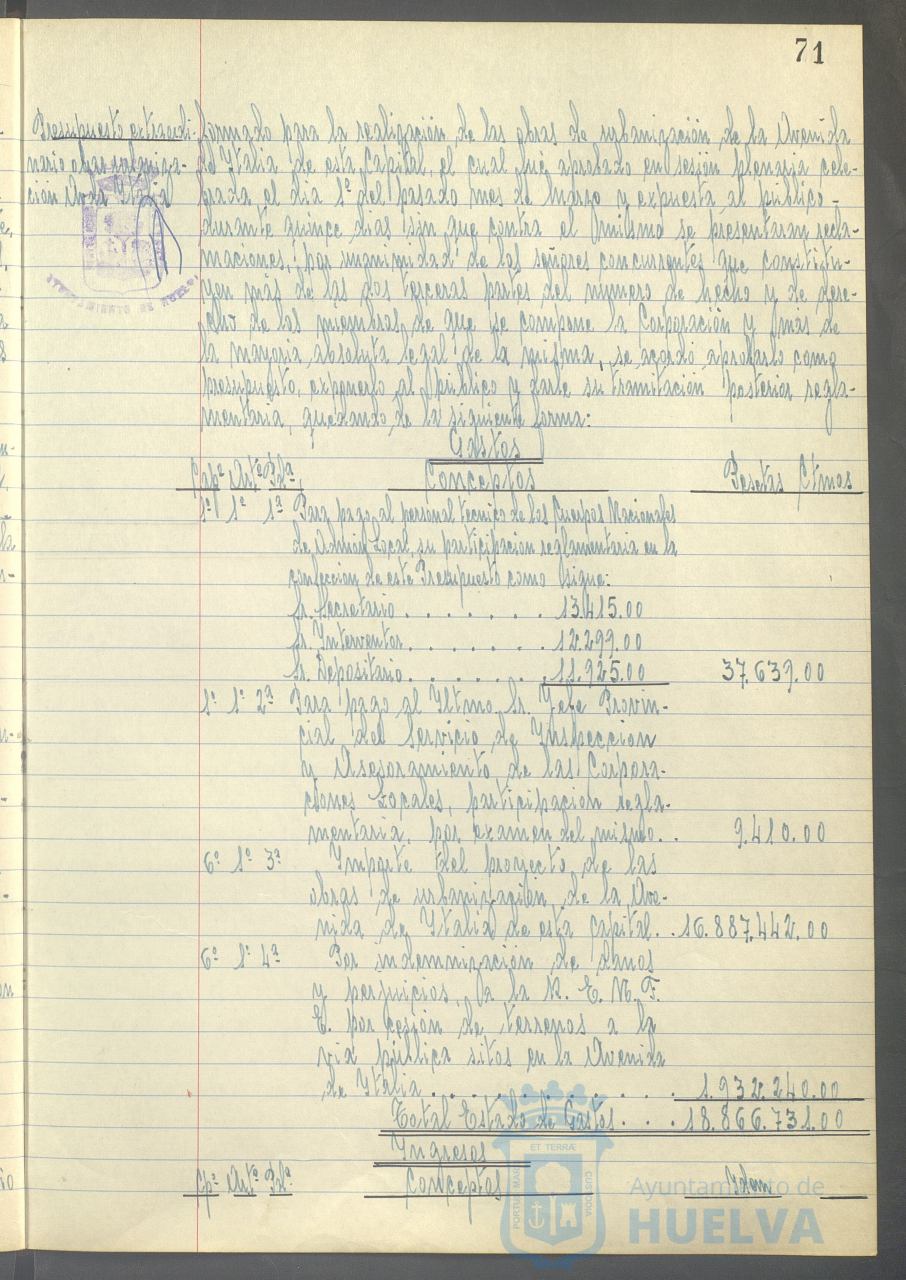 71
Presupuesto extraordi-
nario obras urbaniza-
cion Avda Italia
AYUNTAMIENTO DE HUELVA
formado para la realización de las obras de urbanización de la Avenida
de Italia de esta Capital, el cual fué aprobado en sesión plenaria cele-
brada el dia 1º del pasado mes de Marzo y expuesta al público
durante quince dias sin que contra el mismo se presentaran recla-
maciones, por unanimidad de los señores concurrentes que constitu-
yen más de las dos terceras partes del número de hecho y de dere-
cho de los miembros de que se compone la Corporación y más de
la mayoria absoluta legal de la misma, se acordó aprobarlo como
presupuesto, exponerlo al público y darle su tramitación posterior regla-
mentaria, quedando de la siguiente forma:
Gastos
Capº Artº Pdª Conceptos Pesetas Ctmos
1º 1º 1ª Para pago al personal técnico de los Cuerpos Nacionales
de Admón Local, su participación reglamentaria en la
confección de este Presupuesto como sigue:
Sr. Secretario . . . . . . . 13.415.00
Sr. Interventor . . . . . . . 12.299.00
Sr. Depositario . . . . . . . 11.925.00 37.639.00
1º 1º 2ª Para pago al Iltmo. Sr. Jefe Provin-
cial del Servicio de Inspeccion
y Asesoramiento de las Corpora-
ciones Locales, participacion regla-
mentaria, por examen del mismo. . 9.410.00
6º 1º 3ª Importe del proyecto de las
obras de urbanización de la Ave-
nida de Italia de esta Capital. . 16.887.442.00
6º 1º 4ª Por indemnización de daños
y perjuicios, a la R. E. N. F.
E. por cesión de terrenos a la
via pública sitos en la Avenida
de Italia . . . . . . . . . . 1.932.240.00
Total Estado de Gastos. . . 18.866.731.00
Ingresos
Cpº Artº Pdª Conceptos Idem
PORTUS MARIS
ET TERRÆ
CUSTODIA
Ayuntamiento de
HUELVA